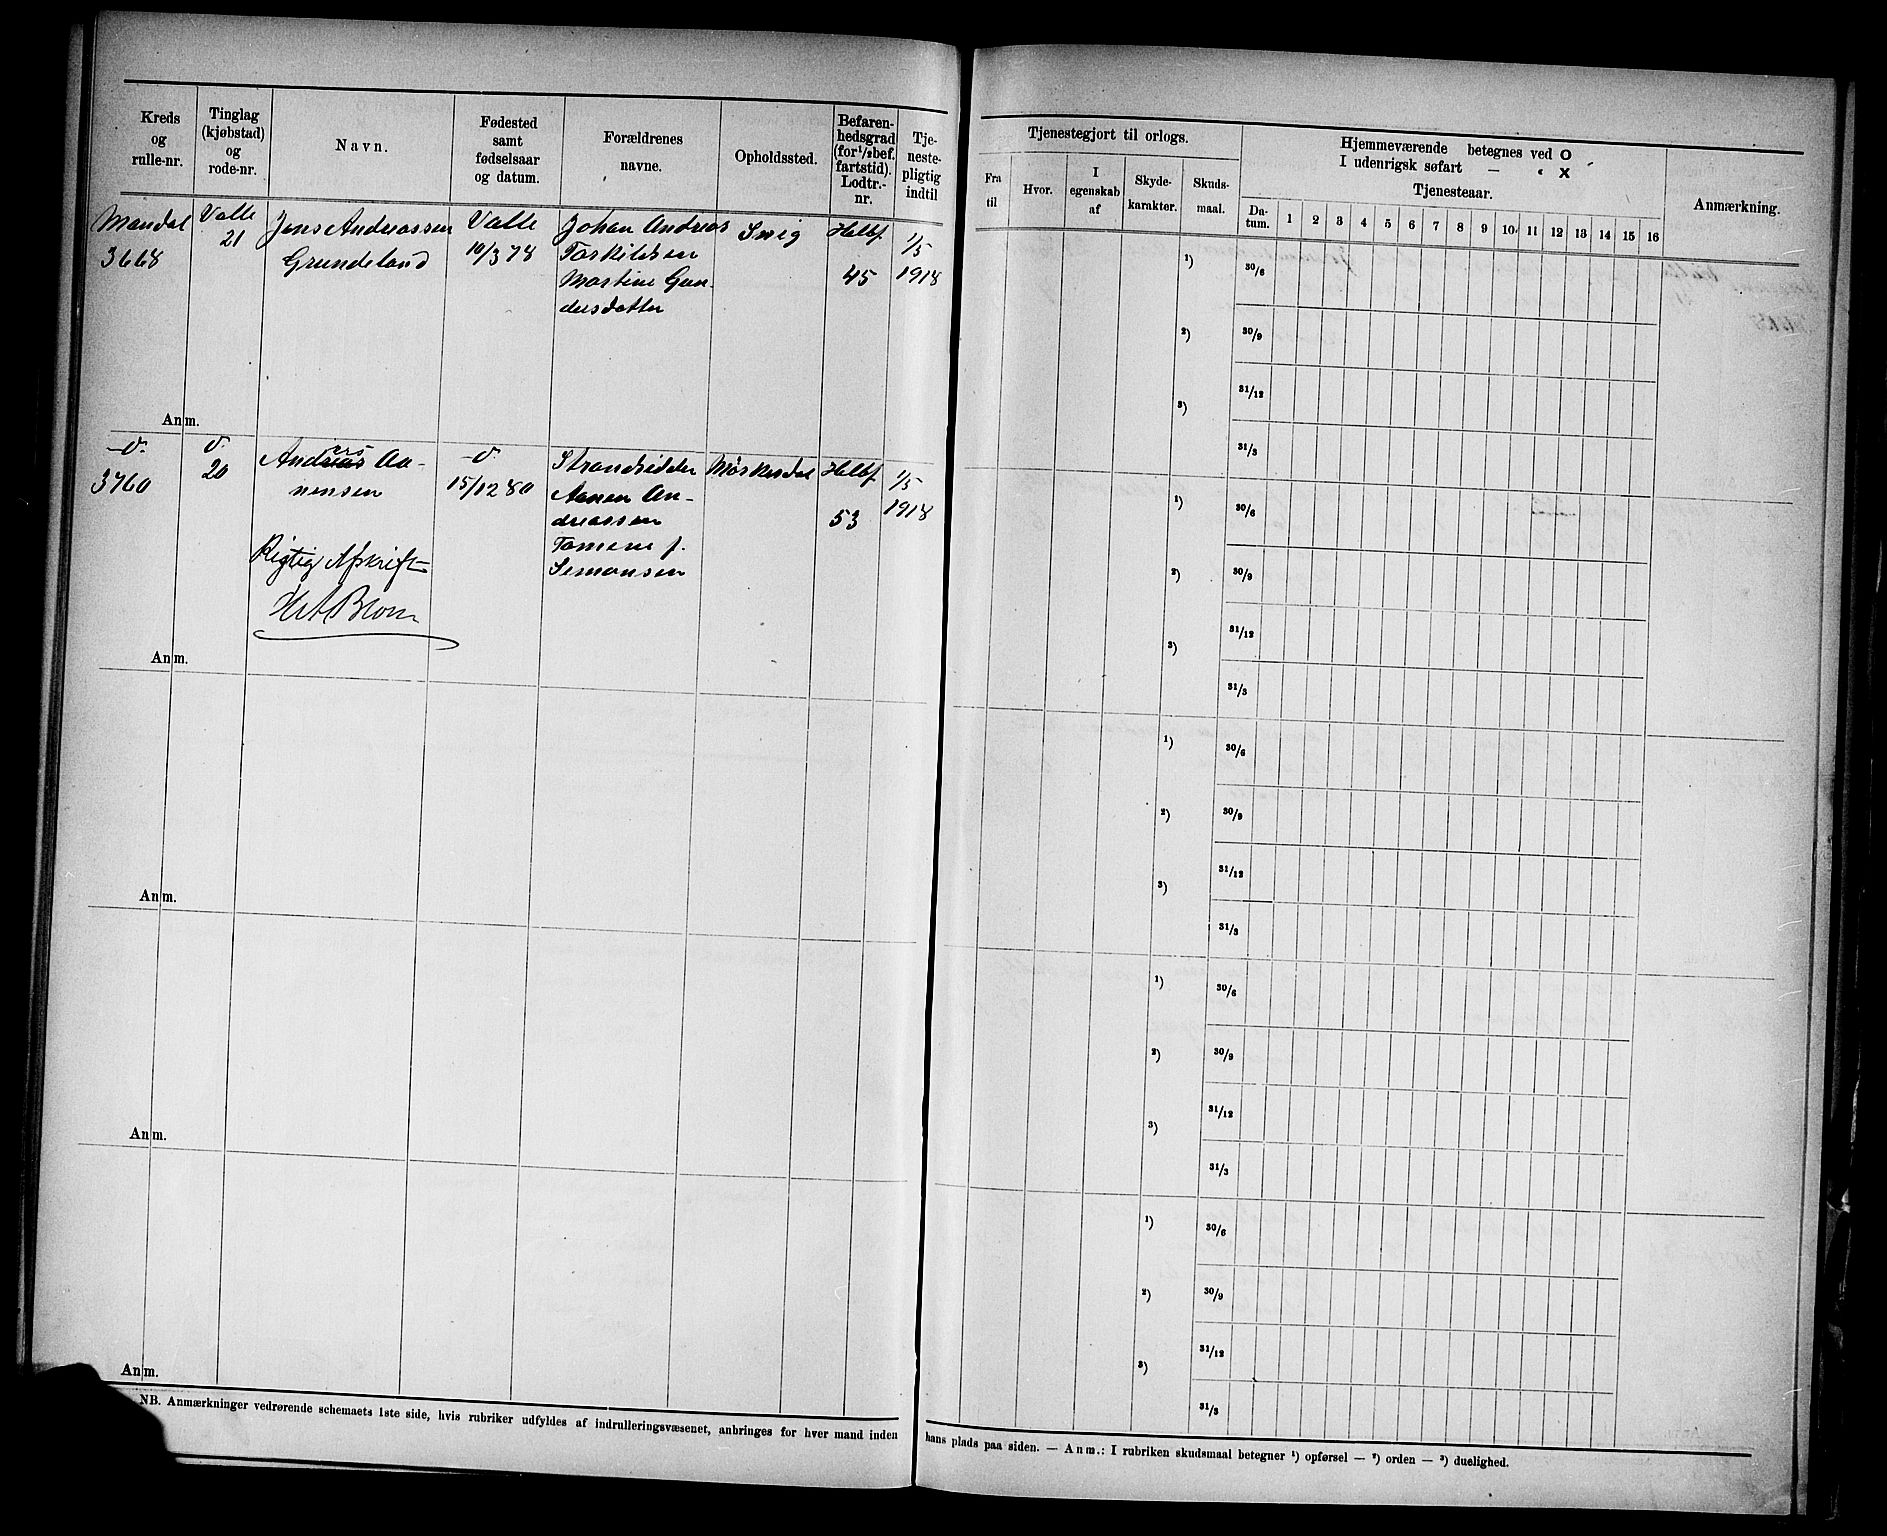 Kreds
og
rulle-nr.
Tinglag
(kjøbstad)
og
rode-nr.
Navn.
Fødested
samt
fødselsaar
og datum.
Forældrenes
navne.
Opholdssted.
Befaren-
hedsgrad
(for 1/2 bef.
fartstid).
Lodtr.-
nr.
Tje-
neste-
pligtig
indtil
Mandal
3668
Valle
21
Jens Andreassen
Grundeland
Valle
19/3 78
Johan Andreas
Torkildsen
Martine Gun-
dersdatter
Svig
Helbf.
45
1/5
1918
Anm.
3760
20
Anders Aa-
nensen
15/12 80
Strandsidder
Aanen An-
dreassen
Tomine f.
Simonsen
Helbf
53
1/5
1918
Rigtig Afskrift
Blom
Anm.
Anm.
Anm.
Anm.
NB. Anmærkninger vedrørende schemaets 1ste side, hvis rubriker udfyldes af indrulleringsvæsenet, anbringes for hver mand inden
Tjenestegjort til orlogs.
Fra
til
Hvor.
I
egenskab
af
Skyde-
karakter.
Skuds-
maal.
Hjemmeværende betegnes ved O
I udenrigsk søfart — „ X
Tjenesteaar.
Da-
tum.
1 2 3 4 5 6 7 8 9 10 11 12 13 14 15 16
Anmærkning.
1) 30/6
2) 30/9
31/12
3)
31/3
1) 30/6
2) 30/9
31/12
3)
31/3
1) 30/6
2) 30/9
31/12
3)
31/3
1) 30/6
2) 30/9
31/12
3)
31/3
1) 30/6
2) 30/9
31/12
3)
31/3
hans plads paa siden. — Anm.: I rubriken skudsmaal betegner 1) opførsel — 2) orden — 3) duelighed.